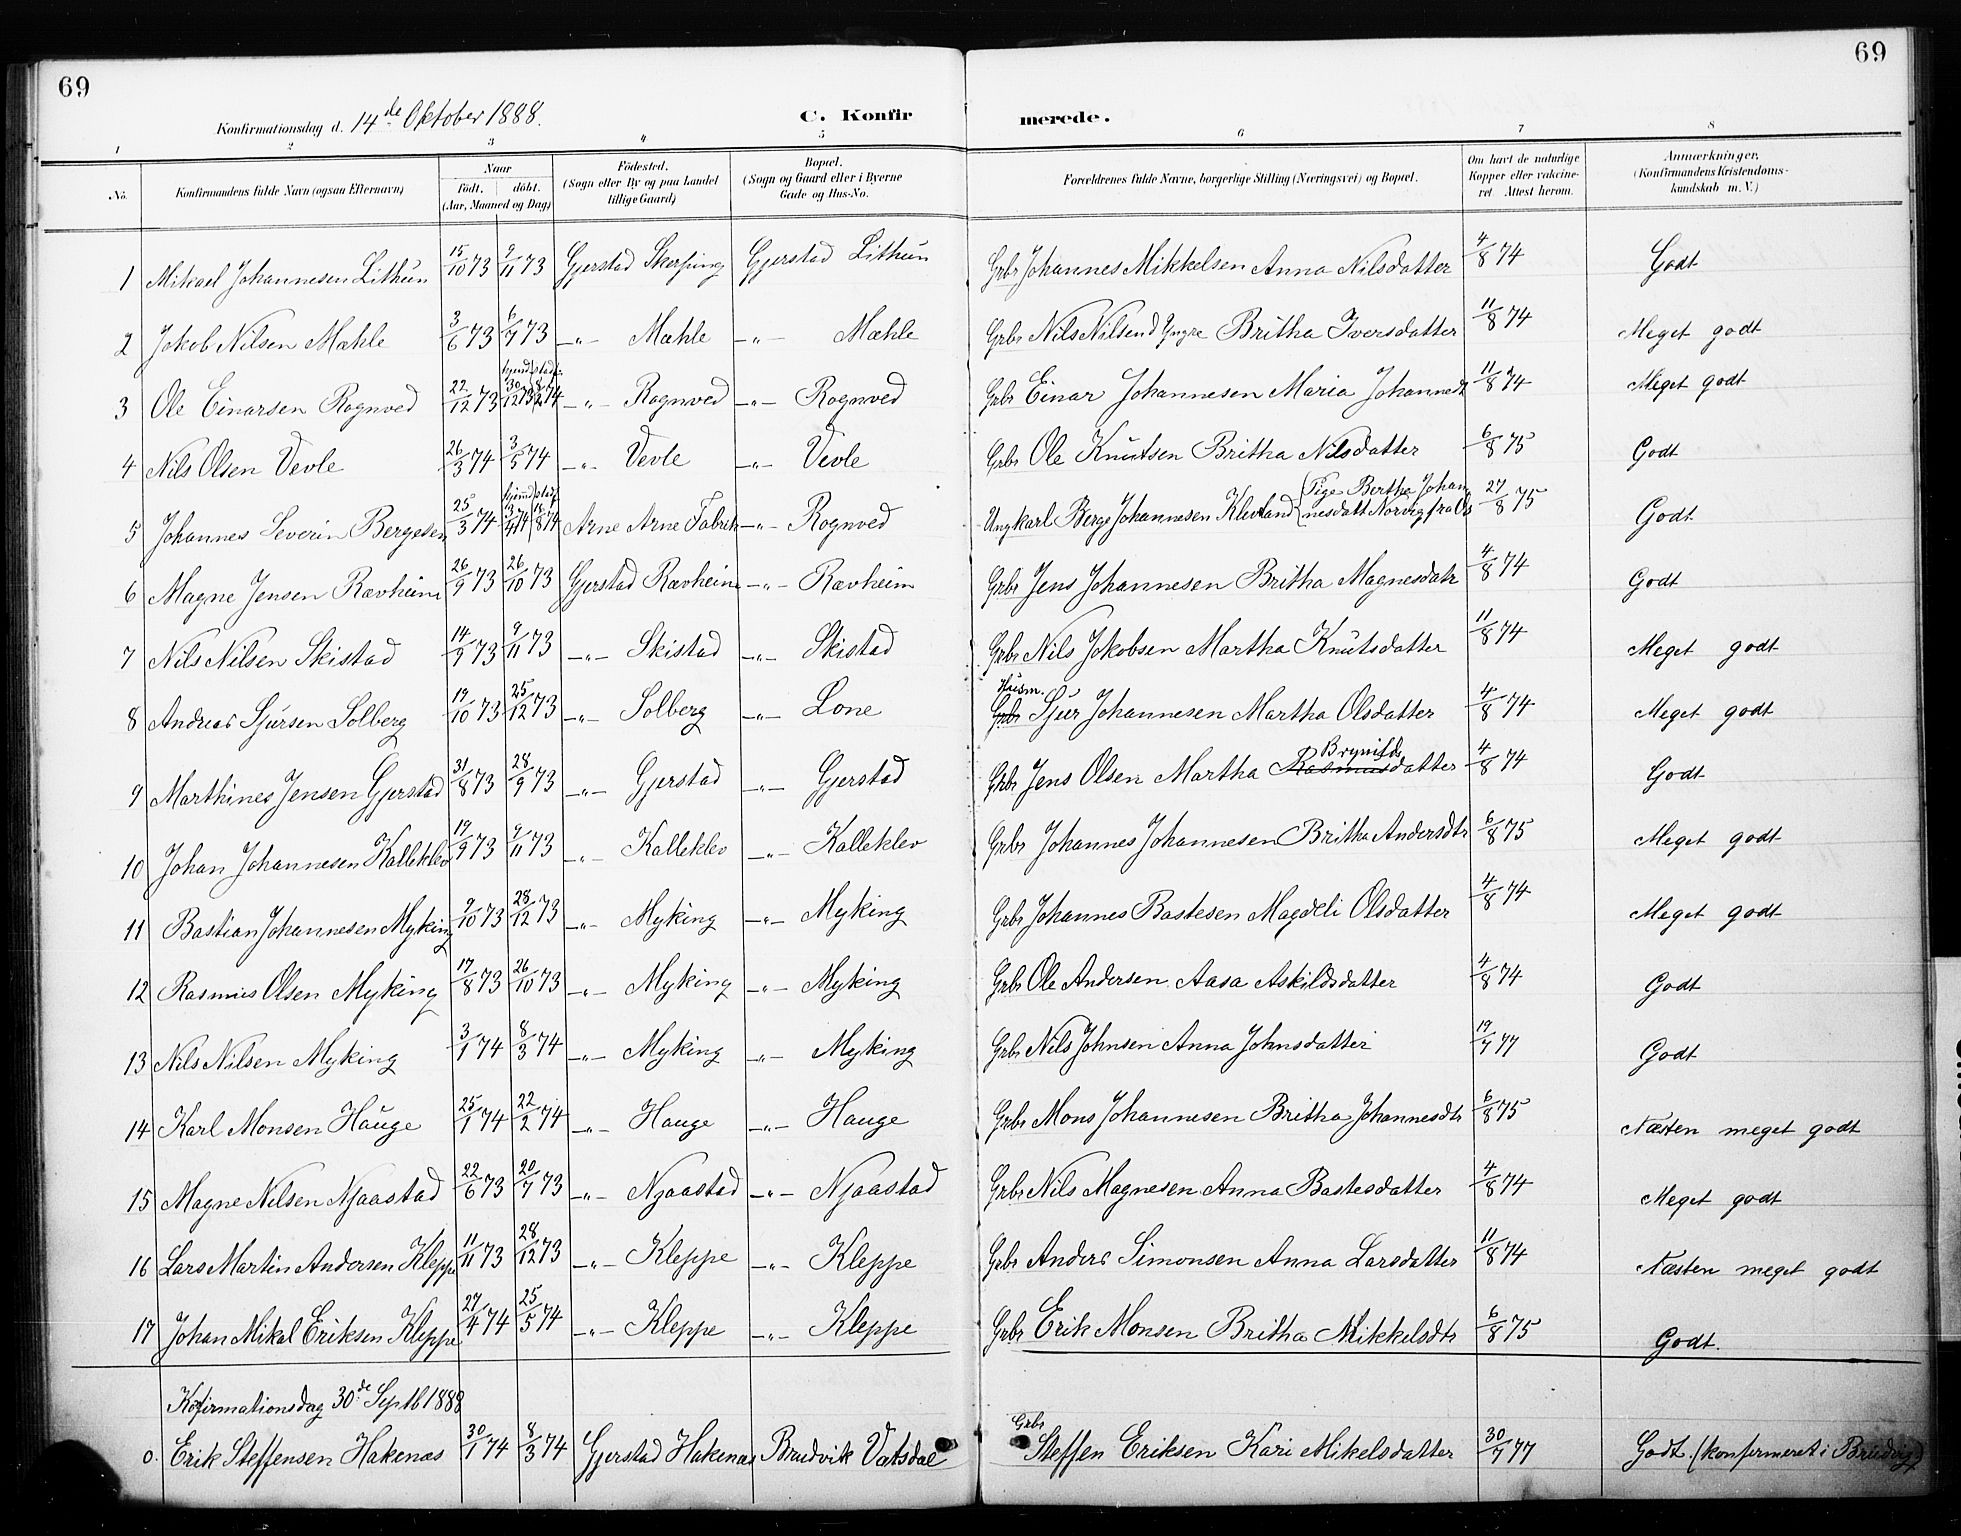 69
69
Konfirmationsdag d. 14de Oktober 1888.
C. Konfirmerede.
1 2 3 4 5 6 7 8
No.
Konfirmandens fulde Navn (ogsaa Efternavn)
Naar
født. døbt.
(Aar, Maaned og Dag)
Fødested.
(Sogn eller By og paa Landet
tillige Gaard)
Bopæl.
(Sogn og Gaard eller i Byerne
Gade og Hus-No.
Forældrenes fulde Navne, borgerlige Stilling (Næringsvei) og Bopæl.
Om havt de naturlige
Kopper eller vakcine-
ret. Attest herom.
Anmærkninger.
(Konfirmandens Kristendoms-
kundskab m. V.)
1 Mikael Johannesen Lithun 15/10 73 9/11 73 Gjerstad Skerping Gjerstad Lithun Grbr Johannes Mikkelsen Anna Nilsdatter 4/8 74 Godt
2 Jakob Nilsen Mæhle 3/6 73 6/7 73 —"— Mæhle —"— Mæhle Grbr Nils Nilsen d Yngre Britha Iversdatter 11/8 74 Meget godt
3 Ole Einarsen Rognved 22/12 73 30/12 73 74 —"— Rognved —"— Rognved Grbr Einar Johannesen Maria Johannedt 11/8 74 Meget godt
4 Nils Olsen Vevle 26/3 74 3/5 74 —"— Vevle —"— Vevle Grbr Ole Knutsen Britha Nilsdatter 6/8 75 Godt
5 Johannes Severin Bergesen 25/3 74 74 74 Arne Arne Fabrik —"— Rognved Ungkarl Berge Johannesen Klevland (Pige Bertha Johannesdatt Norvig fra Os 27/8 75 Godt
6 Magne Jensen Ravheim 26/9 73 26/10 73 Gjerstad Ravheim —"— Ravheim Grbr Jens Johannesen Britha Magnesdatr 4/8 74 Godt
7 Nils Nilsen Skistad 14/9 73 9/11 73 —"— Skistad —"— Skistad Grbr Nils Jakobsen Martha Knutsdatter 11/8 74 Meget godt
8 Andreas Sjursen Solberg 19/10 73 25/12 73 —"— Solberg —"— Lone Grbr Husm. Sjur Johannesen Martha Olsdatter 4/8 74 Meget godt
9 Marthines Jensen Gjerstad 31/8 73 28/9 73 —"— Gjerstad —"— Gjerstad Grbr Jens Olsen Martha Rasmusdatter Brynilds 4/8 74 Godt
10 Johan Johannesen Kalleklev 19/9 73 9/11 73 —"— Kalleklev —"— Kalleklev Grbr Johannes Johannesen Britha Andersdtr 6/8 75 Meget godt
11 Bastian Johannesen Myking 9/10 73 28/12 73 —"— Myking —"— Myking Grbr Johannes Bastesen Magdeli Olsdatter 4/8 74 Meget godt
12 Rasmus Olsen Myking 17/8 73 26/10 73 —"— Myking —"— Myking Grbr Ole Andersen Aasa Askildsdatter 4/8 74 Godt
13 Nils Nilsen Myking 3/1 74 8/3 74 —"— Myking —"— Myking Grbr Nils Johnsen Anna Johnsdatter 19/7 77 Godt
14 Karl Monsen Hauge 25/1 74 22/2 74 —"— Hauge —"— Hauge Grbr Mons Johannesen Britha Johannesdtr 6/8 75 Næsten meget godt
15 Magne Nilsen Njaastad 22/6 73 20/7 73 —"— Njaastad —"— Njaastad Grbr Nils Magnesen Anna Bastesdatter 4/8 74 Meget godt
16 Lars Martin Andersen Kleppe 11/11 73 28/12 73 —"— Kleppe —"— Kleppe Grbr Anders Simonsen Anna Larsdatter 11/8 74 Næsten meget godt
17 Johan Mikal Eriksen Kleppe 27/4 74 25/5 74 —"— Kleppe —"— Kleppe Grbr Erik Monsen Britha Mikkelsdtr 6/8 75 Godt.
Kofirmationsdag 30de Septb 1888
0. Erik Steffensen Hakenæs 30/1 74 8/3 74 Gjerstad Hakenæs Brudvik Vatsdal Grbr Steffen Eriksen Kari Mikelsdatter 30/7 77 Godt. (konfirmeret i Brudvig)